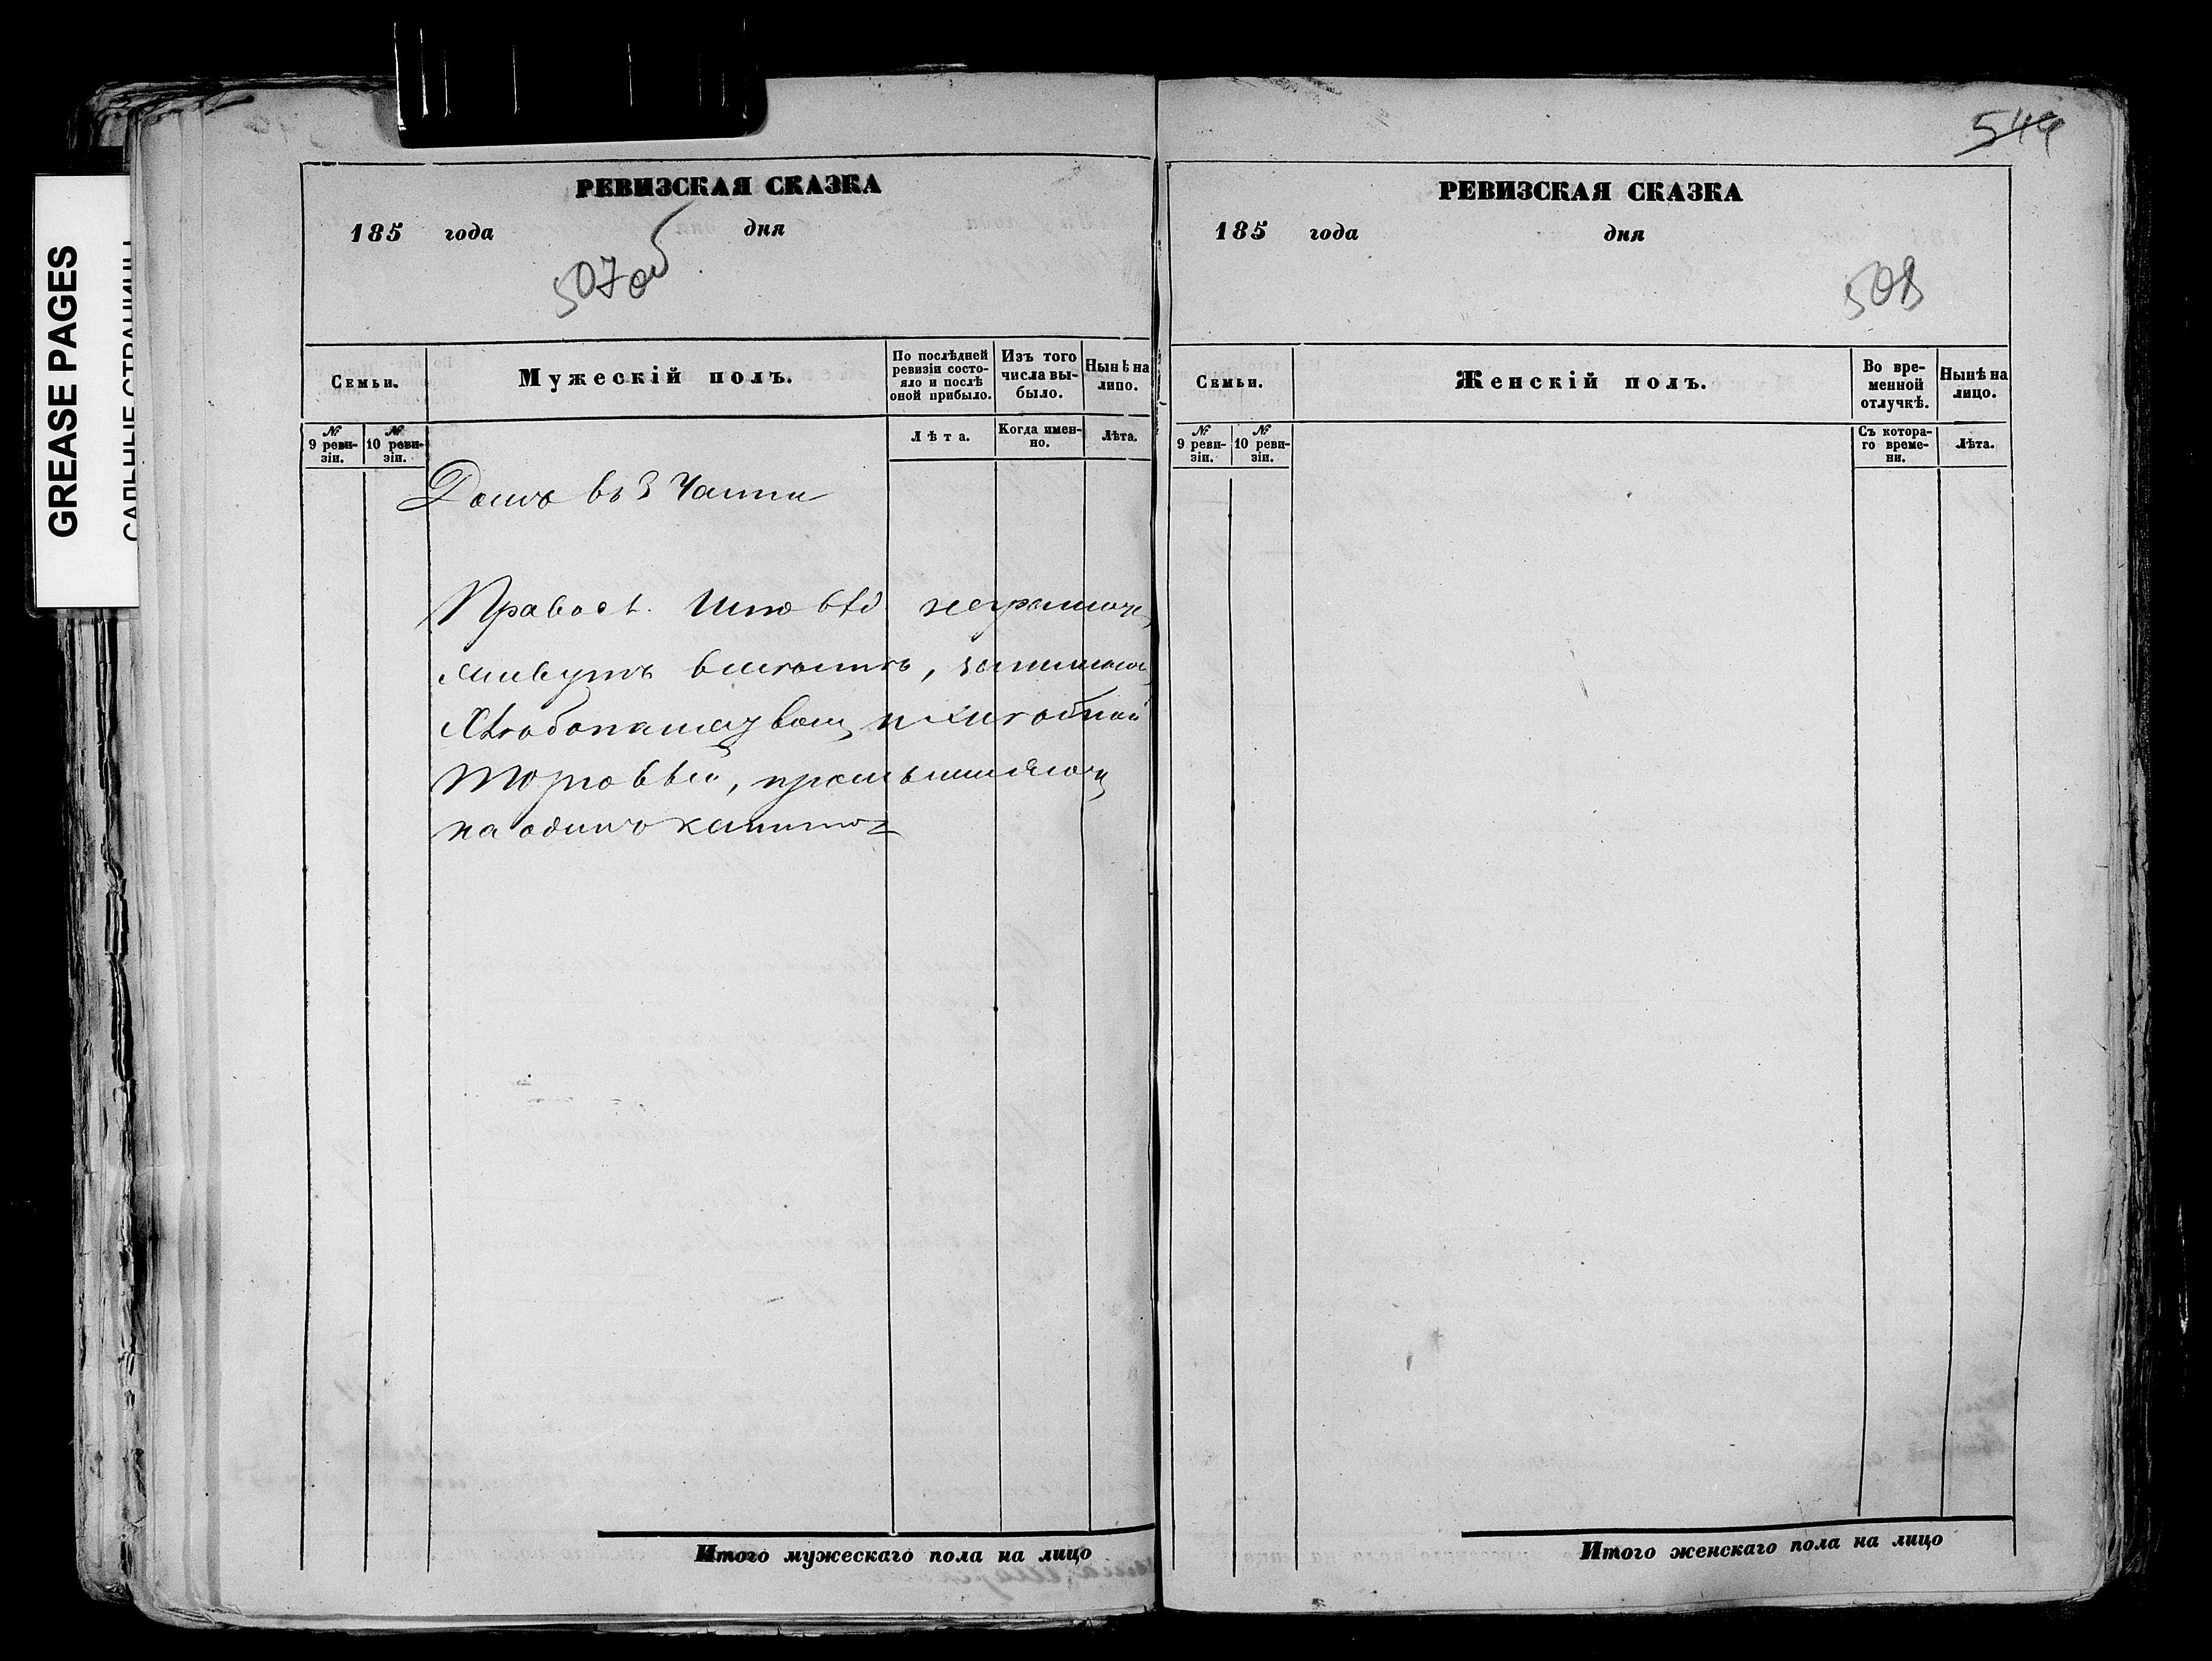 GREASE PAGES
САЛЬНЫЕ СТРАНИЦЫ
РЕВИЗСКАЯ СКАЗКА
185 года дня
507об
Семьи.
Мужескій полъ.
По послѣдней ревизіи состояло и послѣ оной прибыло.
Изъ того числа выбыло.
Нынѣ на лицо.
№ 9 ревизіи.
№ 10 ревизіи.
Лѣта.
Когда именно.
Лѣта.
Домъ въ 3 Части
Правосл. вѣд. неграмотн
живутъ вмѣстѣ,
Хлѣбопашествомъ и мелочной
торговлей, промышляютъ
на одинъ капитал
Итого мужескаго пола на лицо
544
РЕВИЗСКАЯ СКАЗКА
185 года дня
508
Семьи.
Женскій полъ.
Во временной отлучкѣ.
Нынѣ на лицо.
№ 9 ревизіи.
№ 10 ревизіи.
Съ котораго времени.
Лѣта.
Итого женскаго пола на лицо